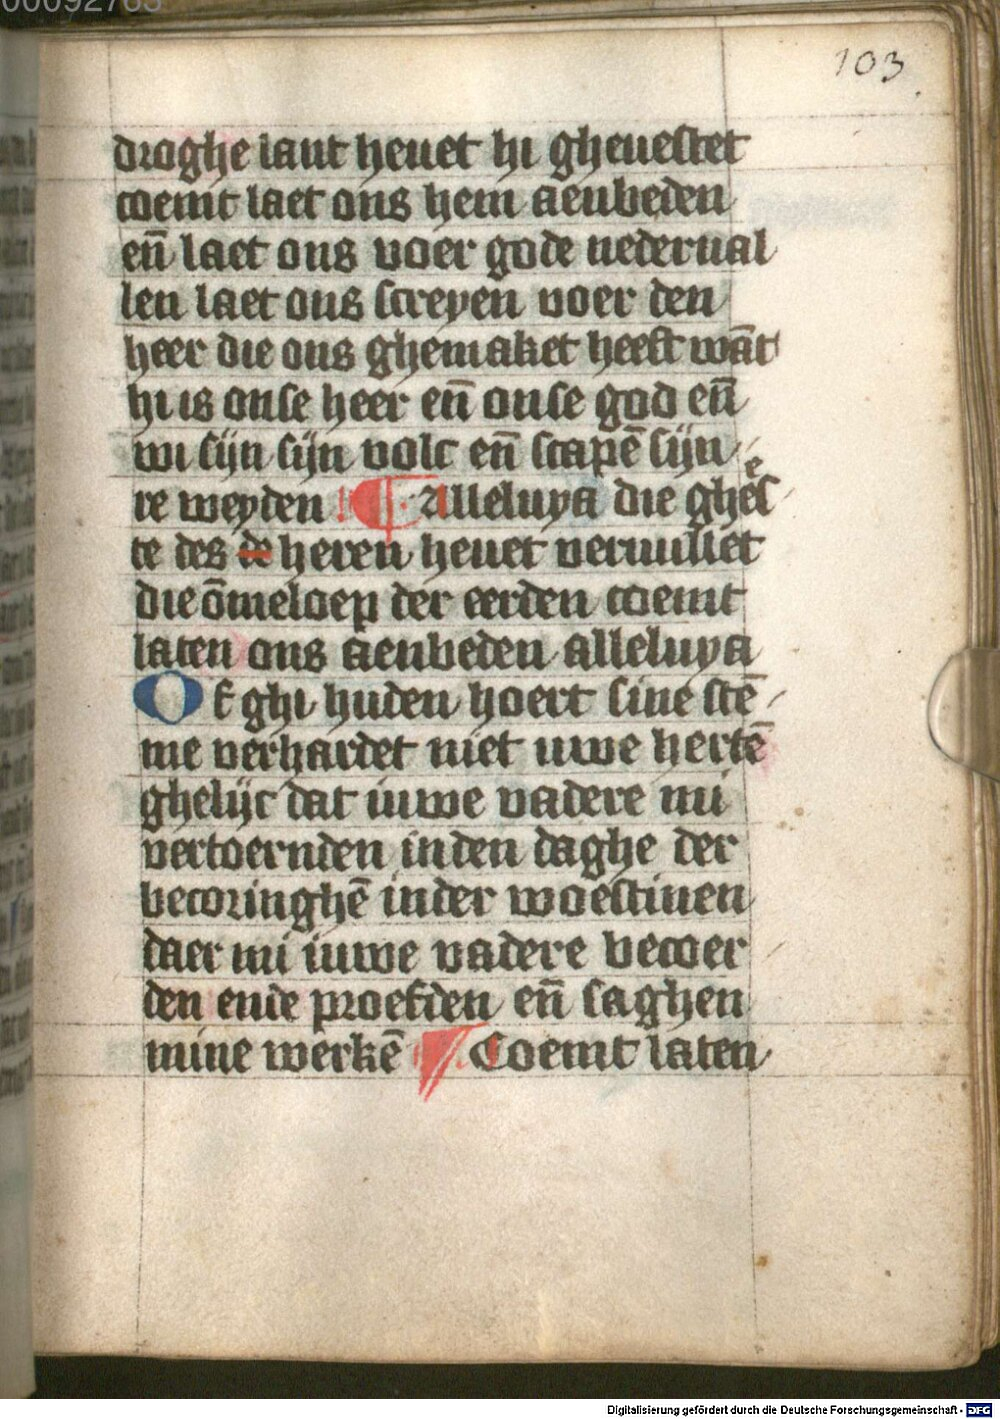 00092763
103
droghe lant heuet hi gheuestet
coemt laet ons hem aenbeden
en̄ laet ons voer gode nederual
len laet ons screyen voer den
heer die ons ghemaket heeft wāt
hi is onse heer en̄ onse god en̄
wi sijn sijn volc en̄ scapē sijn
re weyden Alleluya die ghees
te des de heren heuet veruullet
die ōmeloep der eerden coemt
laten ons aenbeden alleluya
Of ghi huden hoert sine stē
me verhardet niet uwe hertē
ghelijc dat iuwe vadere mi
vertoernden in den daghe der
becoringhē in der woestinen
daer mi iuwe vadere becoer
den ende proefden en̄ saghen
mine werkē Coemt laten
Digitalisierung gefördert durch die Deutsche Forschungsgemeinschaft - DFG